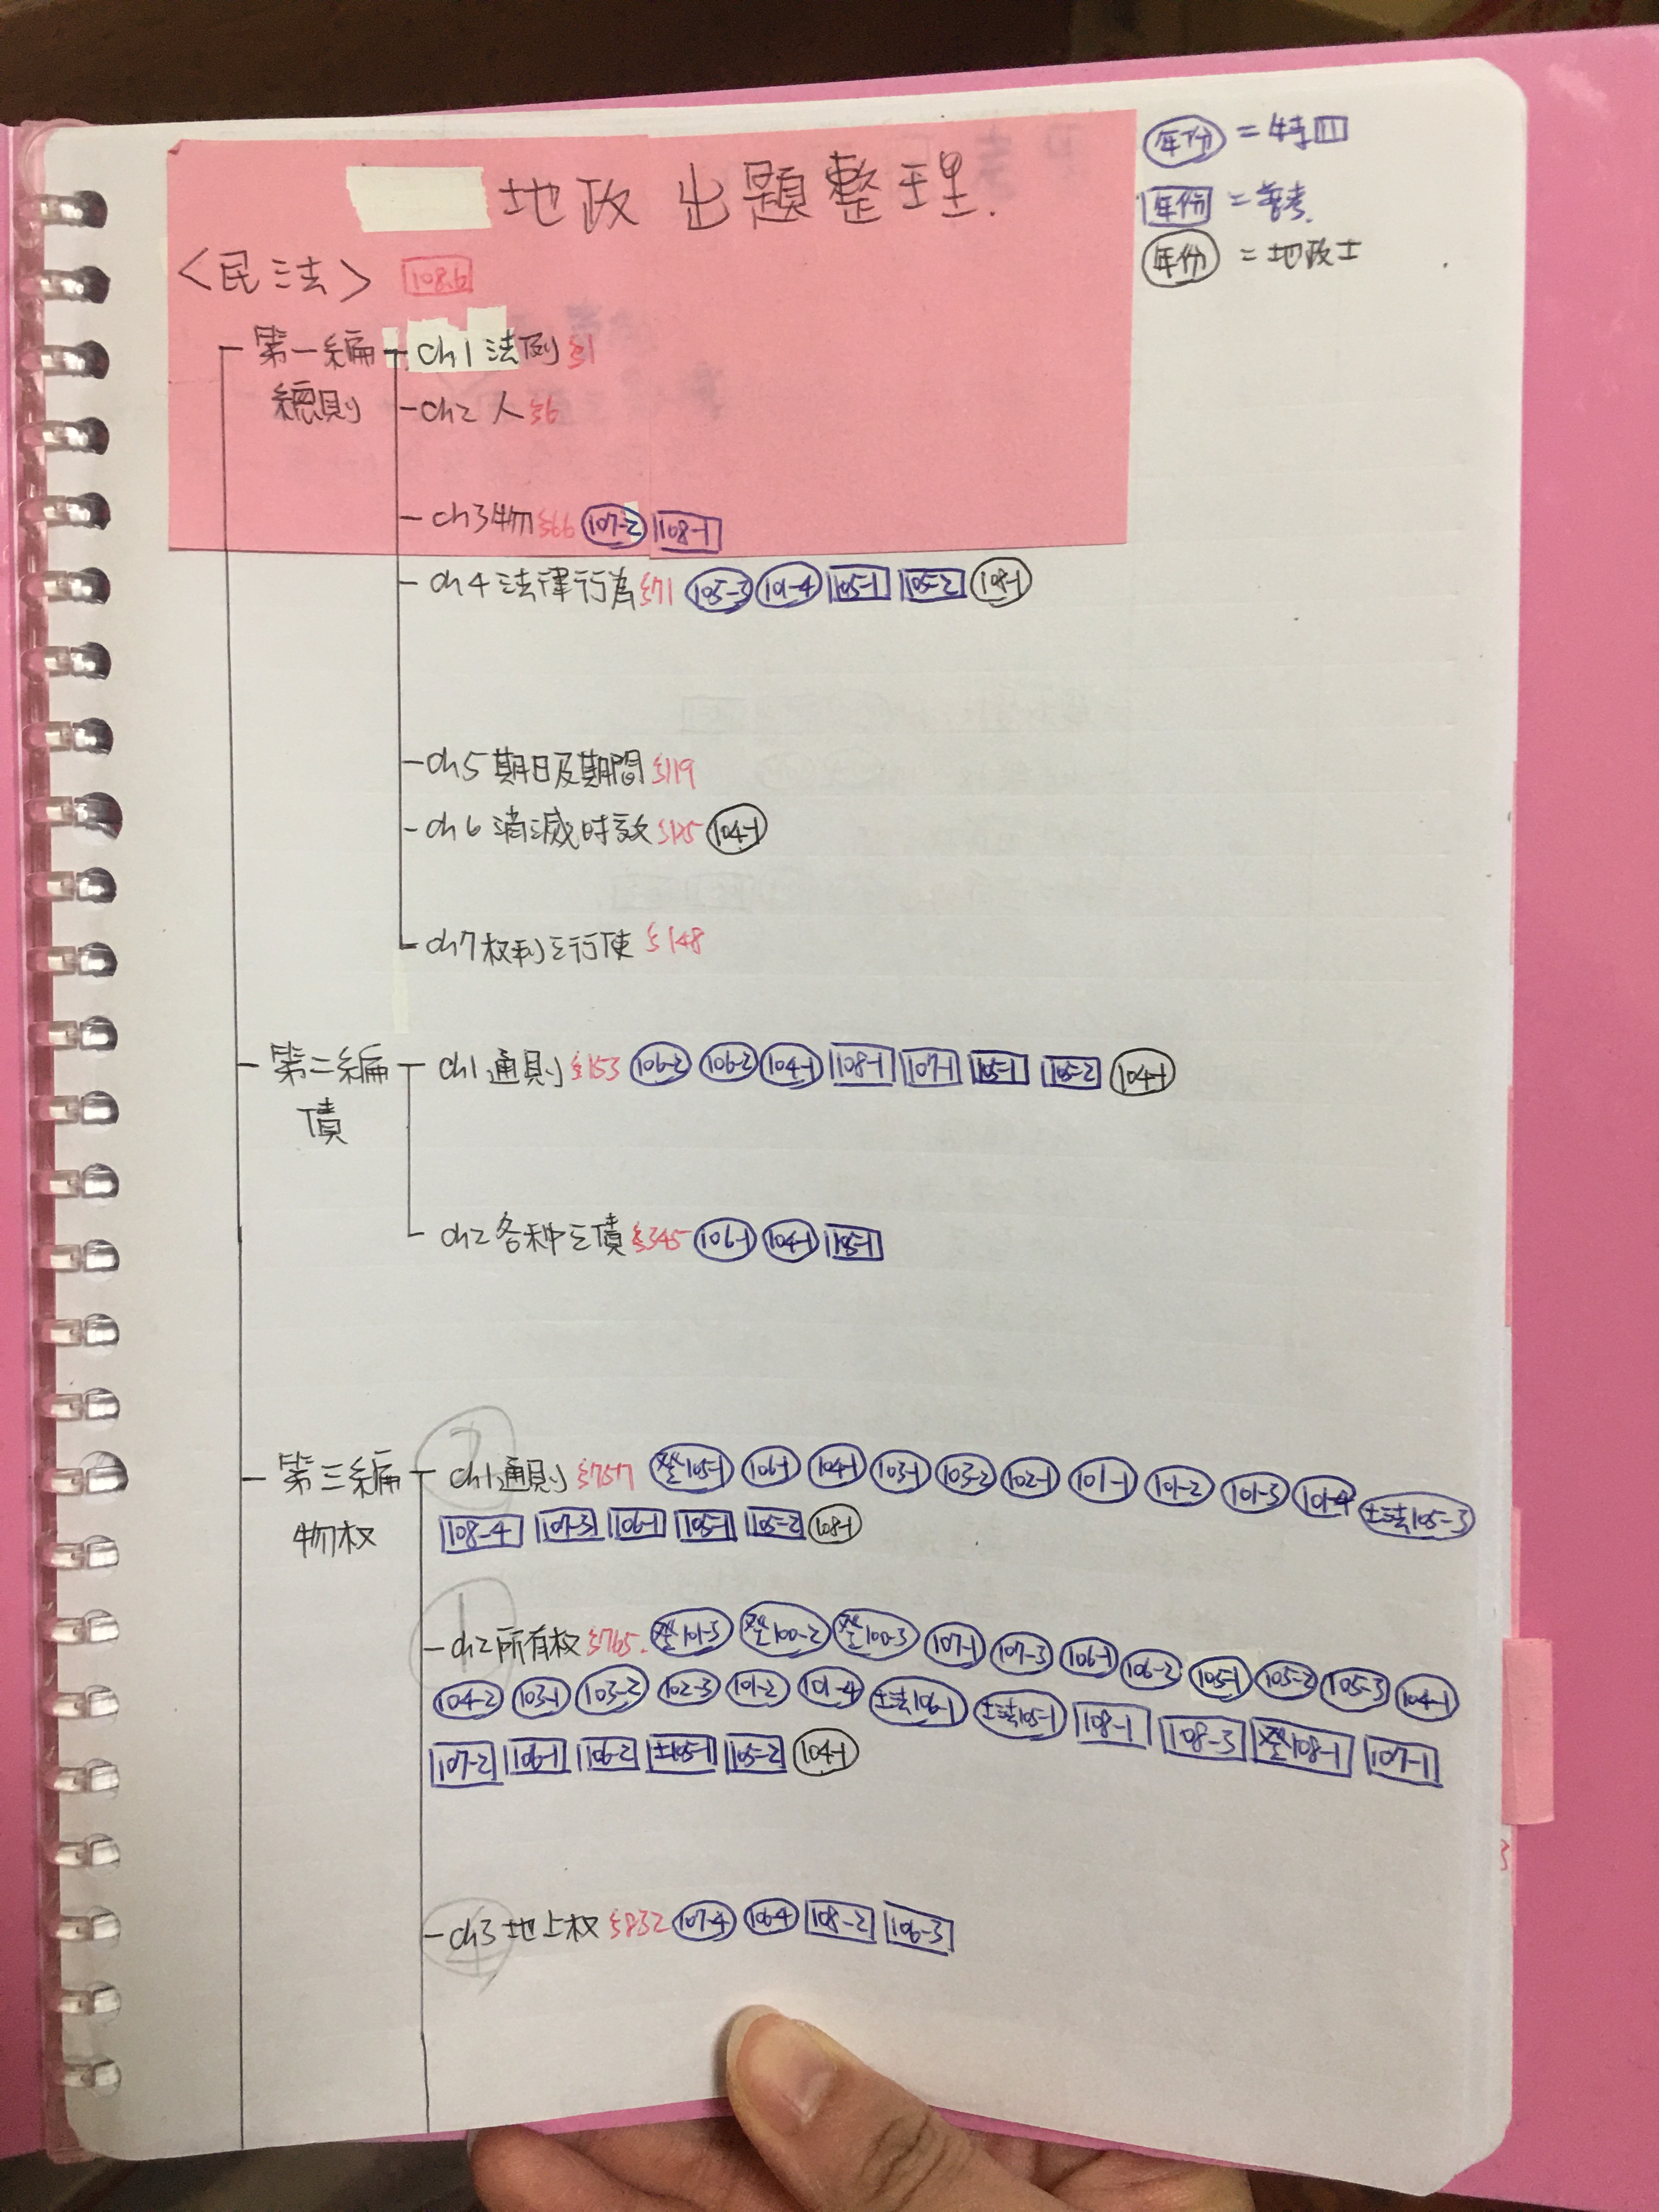 地政 出題整理.
年份 = 特四
年份 = 普考.
年份 = 地政士
<民法> 108.6
第一編 總則
ch1 法例 §1
ch2 人 §6
ch3 物 §66 107-2 108-1
ch4 法律行為 §71 105-3 101-4 105-1 105-2 108-1
ch5 期日及期間 §119
ch6 消滅时效 §125 104-1
ch7 权利之行使 §148
第二編 債
ch1 通則 §153 106-2 106-2 104-1 108-1 107-1 105-1 105-2 104-1
ch2 各种之債 §345 106-1 104-1 105-1
第三編 物权
ch1 通則 §757 105-1 106-1 104-1 103-1 103-2 102-1 101-1 101-2 101-3 101-4 土法105-3
108-4 107-3 106-1 105-1 105-2 108-1
ch2 所有权 §765. 101-3 100-2 100-3 107-1 107-3 106-1 106-2 105-1 105-2 105-3 104-1
104-2 103-1 103-2 102-3 101-2 101-4 土法106-1 土法105-1 108-1 108-3 108-1 107-1
107-2 106-1 106-2 土105-1 105-2 104-1
ch3 地上权 §832 107-4 106-4 108-2 106-3